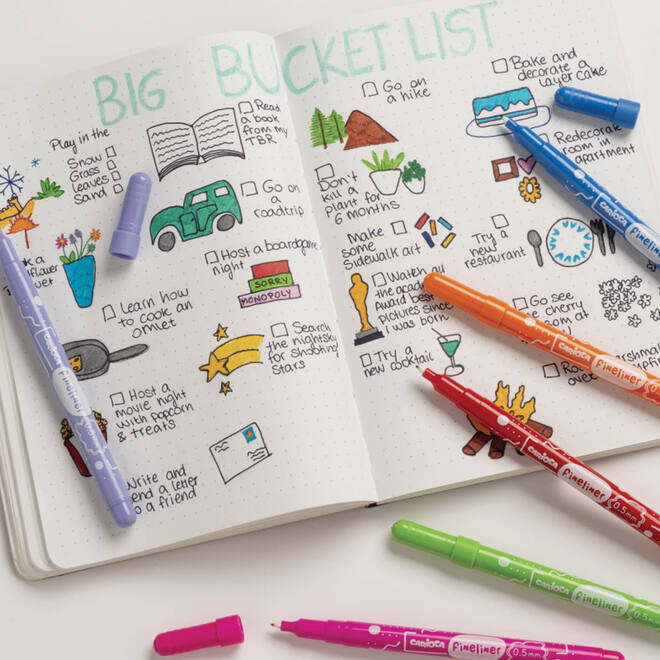 BIG BUCKET LIST
Play in the
Snow
Grass
leaves
Sand
Read
a book
from my
TBR
Go on
a
roadtrip
Host a boardgame
night
SORRY
MONOPOLY
Learn how
to cook an
omlet
Search
the nightsky
for shooting
stars
Host a
movie night
with popcorn
& treats
Write and
send a letter
to a friend
Go on
a hike
Bake and
decorate a
layer cake
Don't
kill a
plant for
6 months
Redecorate
room in
apartment
Make
some
sidewalk art
Try a
new
restaurant
Watch
the academy
Award best
pictures since
I was born
Go see
cherry
at
Try a
new cocktail
over
CARIOCA fineliner
CARIOCA fineliner
CARIOCA fineliner 0.5
CARIOCA fineliner 0.5mm
CARIOCA fineliner 0.5
CARIOCA fineliner 0.5mm